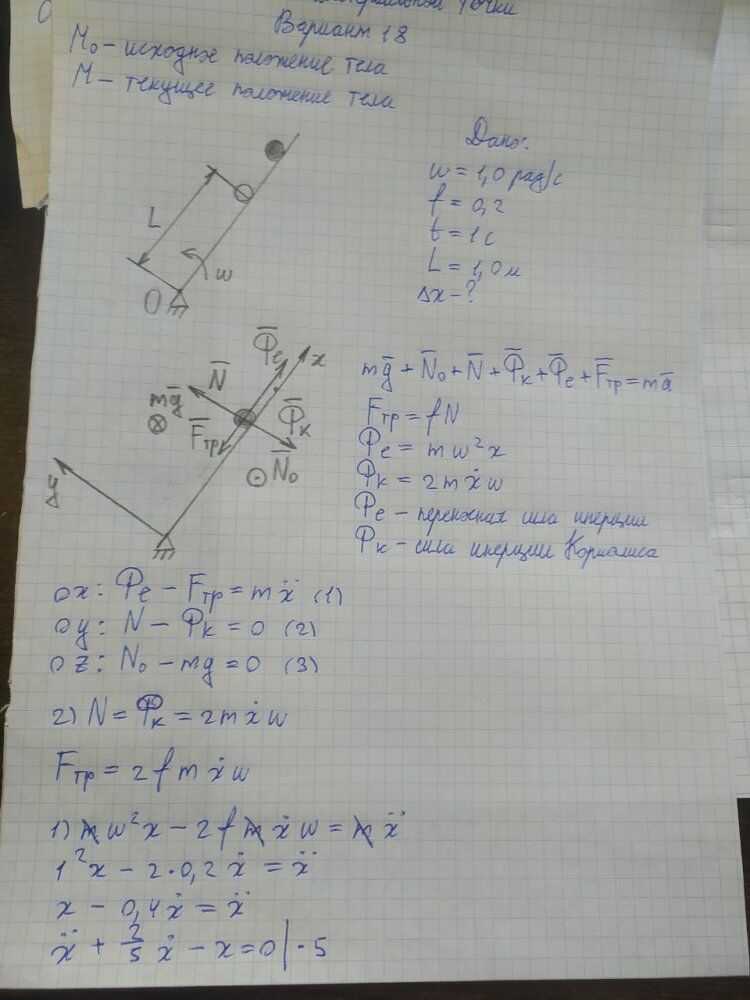 точки
Вариант 18
M₀ – исходное положение тела
M – текущее положение тела
Дано:
w = 1,0 рад/с
f = 0,2
t = 1 с
L = 1,0 м
Δx – ?
L
w
O
Φ̅e
x
N̅
mg̅
F̅тр
Φ̅к
N̅₀
y
mg̅ + N̅₀ + N̅ + Φ̅к + Φ̅e + F̅тр = ma̅
Fтр = fN
Φe = mw²x
Φк = 2mẋw
Φe – переносная сила инерции
Φк – сила инерции Кориолиса
ox: Φe – Fтр = mẍ (1)
oy: N – Φк = 0 (2)
oz: N₀ – mg = 0 (3)
2) N = Φк = 2mẋw
Fтр = 2fmẋw
1) mw²x – 2fmẋw = mẍ
1²x – 2·0,2ẋ = ẍ
x – 0,4ẋ = ẍ
ẍ + 2/5 ẋ – x = 0 | ·5